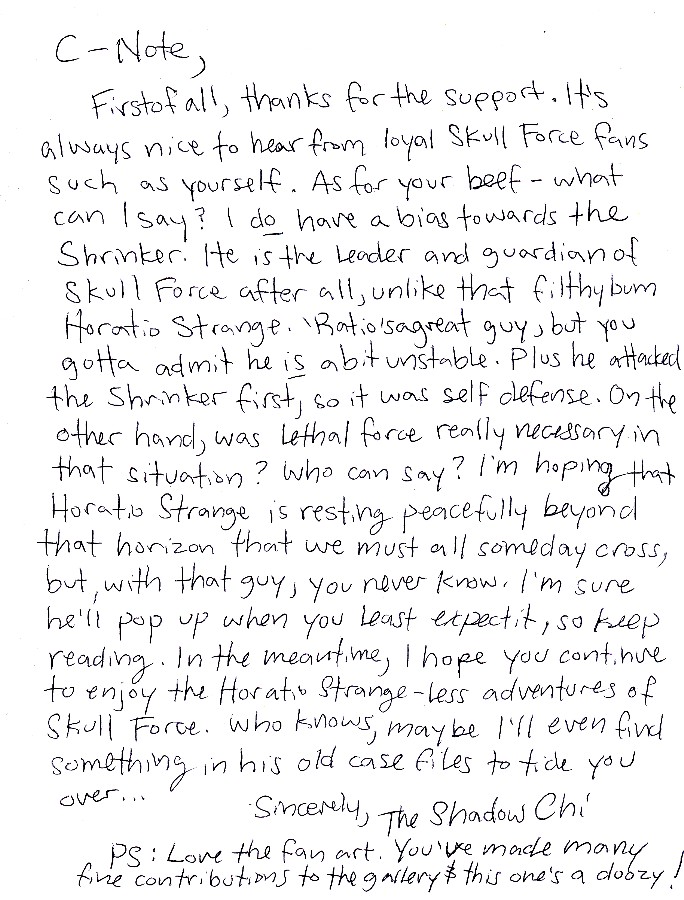 C-Note,
First of all, thanks for the support. It's
always nice to hear from loyal Skull Force fans
such as yourself. As for your beef - what
can I say? I do have a bias towards the
Shrinker. He is the leader and guardian of
Skull Force after all, unlike that filthy bum
Horatio Strange. 'Ratio's a great guy, but you
gotta admit he is a bit unstable. Plus he attacked
the Shrinker first, so it was self defense. On the
other hand, was lethal force really necessary in
that situation? Who can say? I'm hoping that
Horatio Strange is resting peacefully beyond
that horizon that we must all someday cross,
but, with that guy, you never know. I'm sure
he'll pop up when you least expect it, so keep
reading. In the meantime, I hope you continue
to enjoy the Horatio Strange-less adventures of
Skull Force. Who knows, maybe I'll even find
something in his old case files to tide you
over...
Sincerely, The Shadow Chi
PS: Love the fan art. You've made many
fine contributions to the gallery & this one's a doozy!